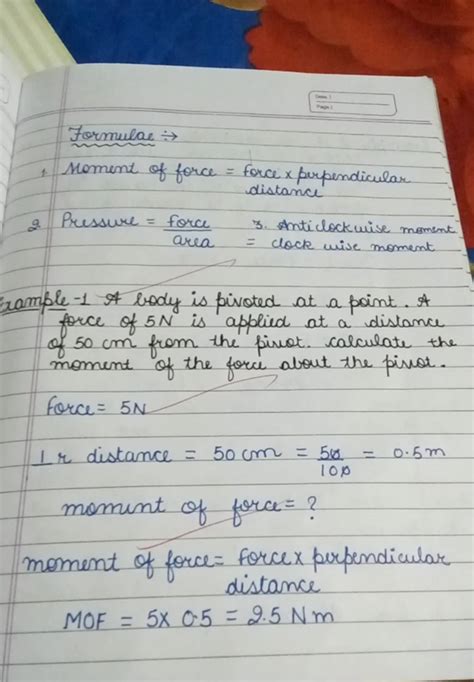 Date /
Page /
Formulae :→
1. Moment of force = force x perpendicular
distance
2. Pressure = force
area
3. Anticlockwise moment
= clock wise moment
Example-1 A body is pivoted at a point. A
force of 5N is applied at a distance
of 50 cm from the pivot. calculate the
moment of the force about the pivot.
force = 5N
⊥ r distance = 50 cm = 50/100 = 0.5 m
momunt of force = ?
moment of force = force x perpendicular
distance
MOF = 5 x 0.5 = 2.5 N m